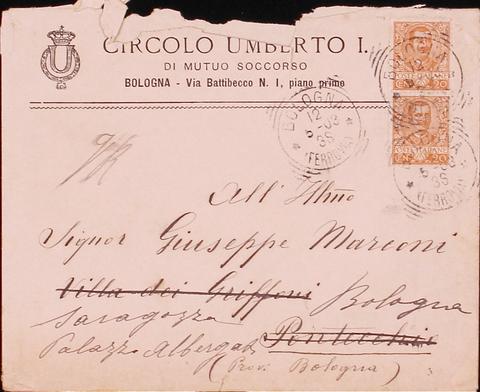 CIRCOLO UMBERTO I.
DI MUTUO SOCCORSO
BOLOGNA - Via Battibecco N. 1, piano primo
BOLOGNA
12
5-03
3S
(FERROVIA)
POSTE ITALIANE
CENT. 20
POSTE ITALIANE
CENT. 20
All' Illmo
Signor Giuseppe Marconi
Villa dei Griffoni Bologna
Saragozza Pontecchio
Palazzo Albergati
(Prov. Bologna)